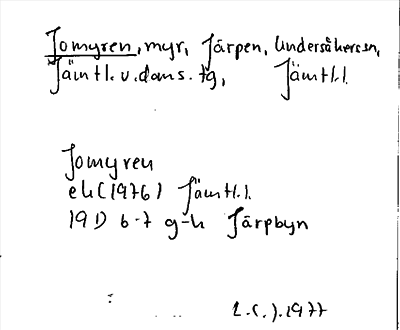 Jomyren, myr, Järpen, Undersåkers sn,
Jämtl. v. doms. tg, Jämtl. l.
Jomyren
ek (1976) Jämtl. l.
19D 6-7 g-h Järpbyn
1977